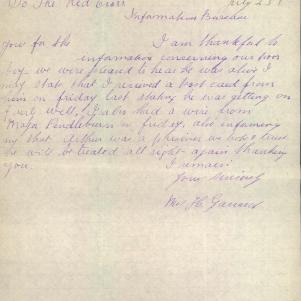 To The Red Cross July 23
Information Bureau
you for the I am thankful to
information concerning our poor
boy we were pleased to hear he was alive I
may state that I received a post card from
him on Friday last stating he was getting on
very well. I also had a wire from
Major Pendlebury on Friday, also informing
me that Arthur was a prisoner we hope & trust
he will be treated all right again thanking
you I remain
Yours Sincerely
Mrs H.